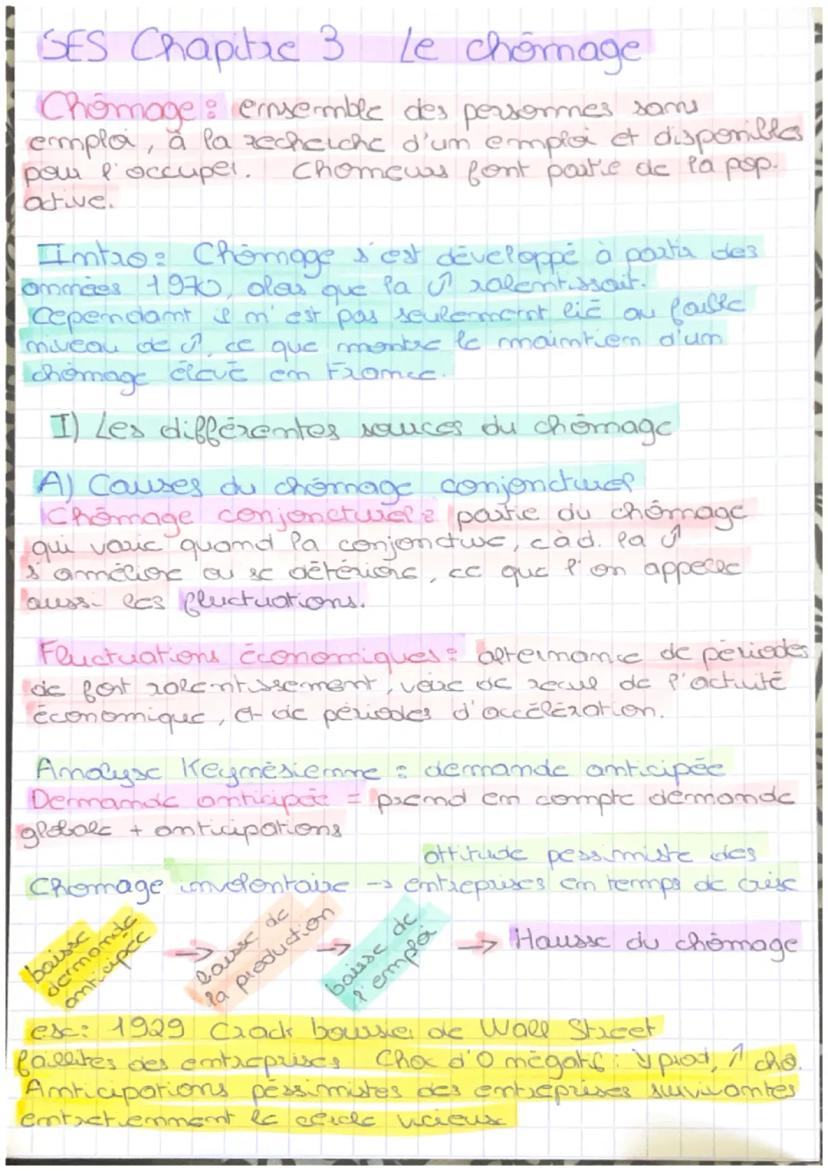 SES Chapitre 3 Le chômage
Chômage : ensemble des personnes sans
emploi, à la recherche d'un emploi et disponibles
pour l'occuper. Chomeurs font partie de la pop.
active.
Intro : Chômage s'est développé à partir des
années 1970, alors que la ↗ ralentissait.
Cependant il n'est pas seulement lié au faible
niveau de ↗, ce que montre le maintien d'un
chômage élevé en France.
I) Les différentes sources du chômage
A) Causes du chômage conjoncturel
Chômage conjoncturel : partie du chômage
qui varie quand la conjoncture, càd. la ↗
s'améliore ou se détériore, ce que l'on appelle
aussi les fluctuations.
Fluctuations économiques : alternance de périodes
de fort ralentissement, voire de recul de l'activité
économique, et de périodes d'accélération.
Analyse Keynésienne : demande anticipée
Demande anticipée = prend en compte demande
globale + anticipations
attitude pessimiste des
Chomage involontaire → entreprises en temps de crise
baisse demande anticipée → baisse de la production → baisse de l'emploi → Hausse du chômage
ex : 1929 Crack boursier de Wall Street
faillites des entreprises Choc d'O négatif : ↘ prod, ↗ cho.
Anticipations péssimistes des entreprises suivantes
entretiennent le cercle vicieux